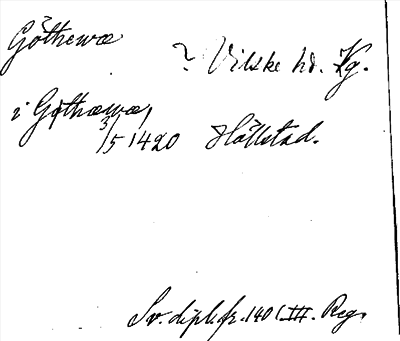 Göthewæ
? Vilske hd. Vg.
i Gøthæwæ,
3/5 1420 Hällstad.
Sv. dipl. fr. 1401 III. Reg.